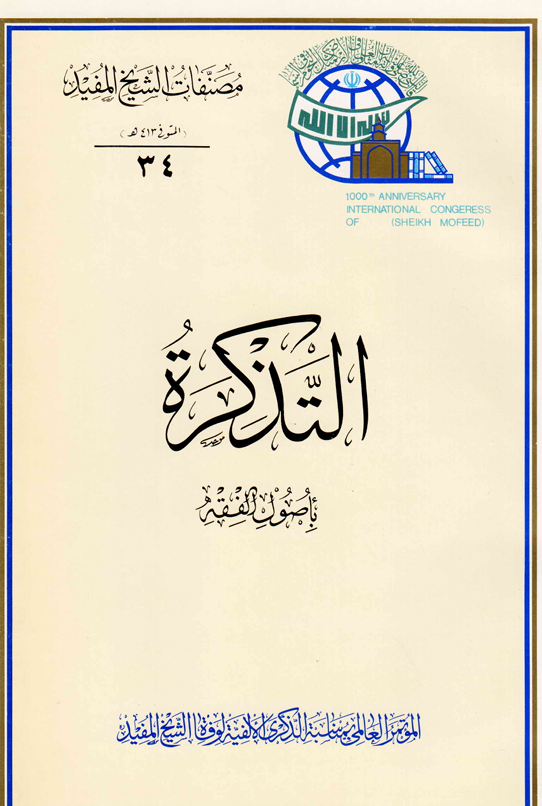 مصنَّفات الشَّيخ المفيد
(المتوفى ٤١٣ هـ)
٣٤
لا إله إلا الله
1000th ANNIVERSARY
INTERNATIONAL CONGERESS
OF (SHEIKH MOFEED)
التَّذكِرَةُ
بأُصُولِ الفِقهِ
المؤتمر العالمي بمناسبة الذكرى الألفية لوفاة الشيخ المفيد